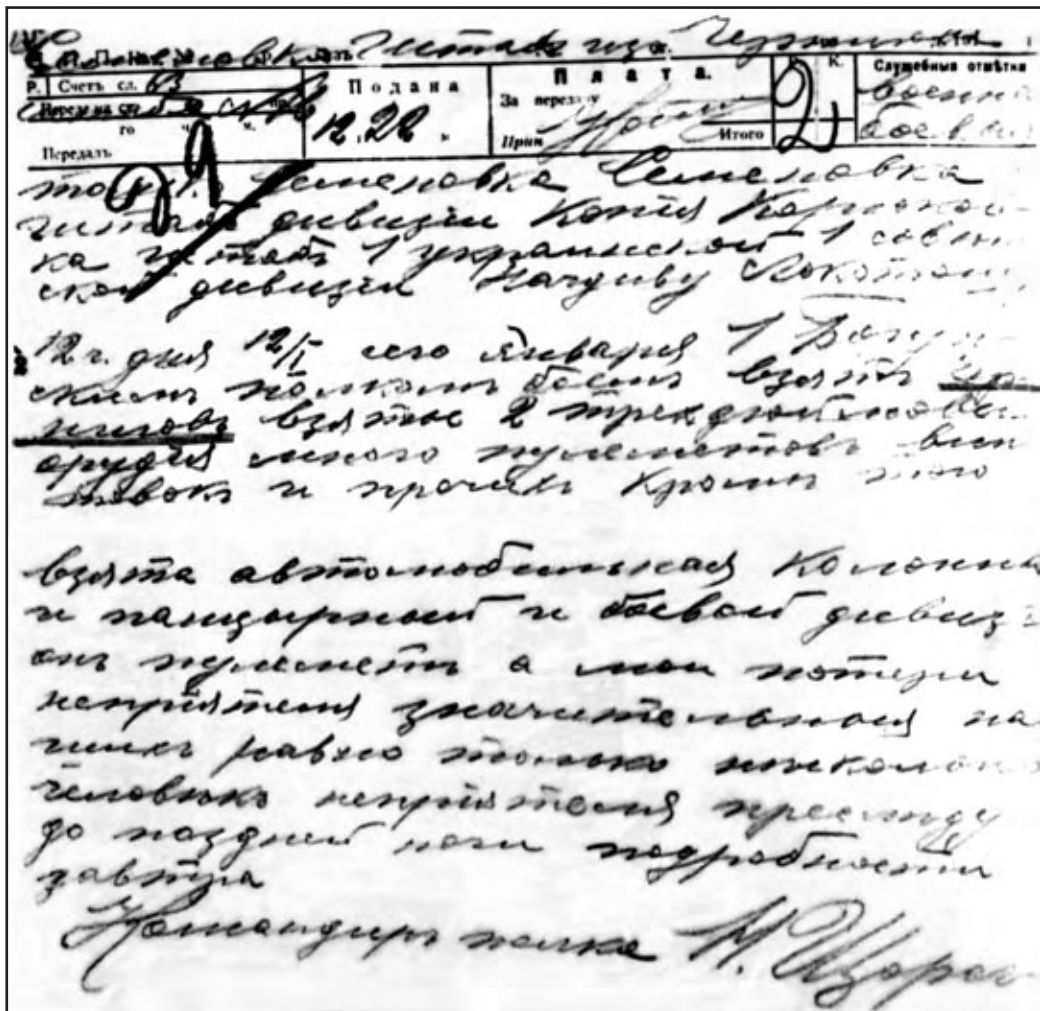 Семеновка Штаб из Чернигова
Р. Счетъ сл. 63 Подана Плата. К. Служебныя отмѣтки
За передачу военная
го ч. м. 12.22 Прин Итого 2 боевая
Передалъ 9
Семеновка Семеновка
штабъ дивизіи Копія
ка штабъ 1 украинской 1 совѣт
ской дивизіи Начдиву Локотош
12 ч. дня 12/I сего Января 1 Богун
скимъ полкомъ боемъ взятъ Чер
ниговъ взяты 2 трехдюймовы
орудия много пулеметовъ вин
товокъ и прочихъ кромѣ того
взята автомобильная колонна
и панцырный и боевой дивиз
онъ пулеметъ а мои потери
непріятеля значительныя на
шихъ ранено только нѣсколько
человѣкъ непріятеля преслѣду
до поздней ночи подробности
завтра
Командиръ полка Н. Щорсъ